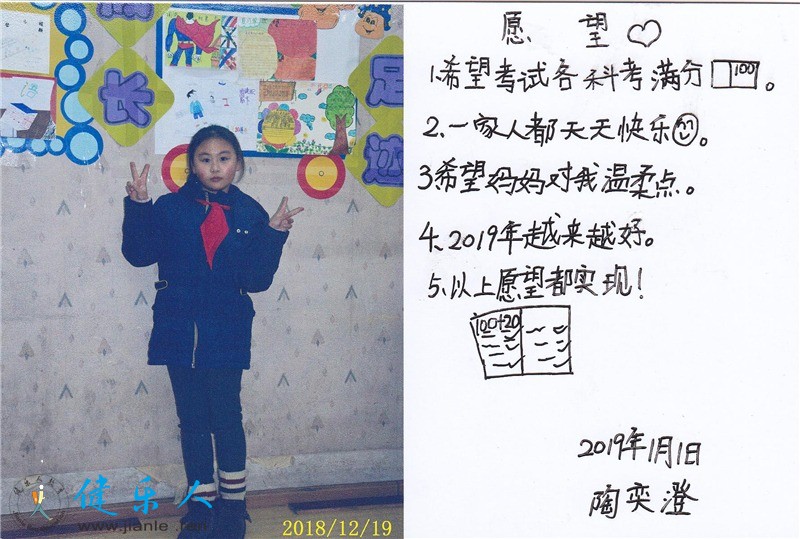 长
足
迹
健乐人
www.jianle
2018/12/19
愿 望
1.希望考试各科考满分 100 。
2.一家人都天天快乐。
3希望妈妈对我温柔点。
4、2019年越来越好。
5、以上愿望都实现!
100+20
2019年1月1日
陶奕澄